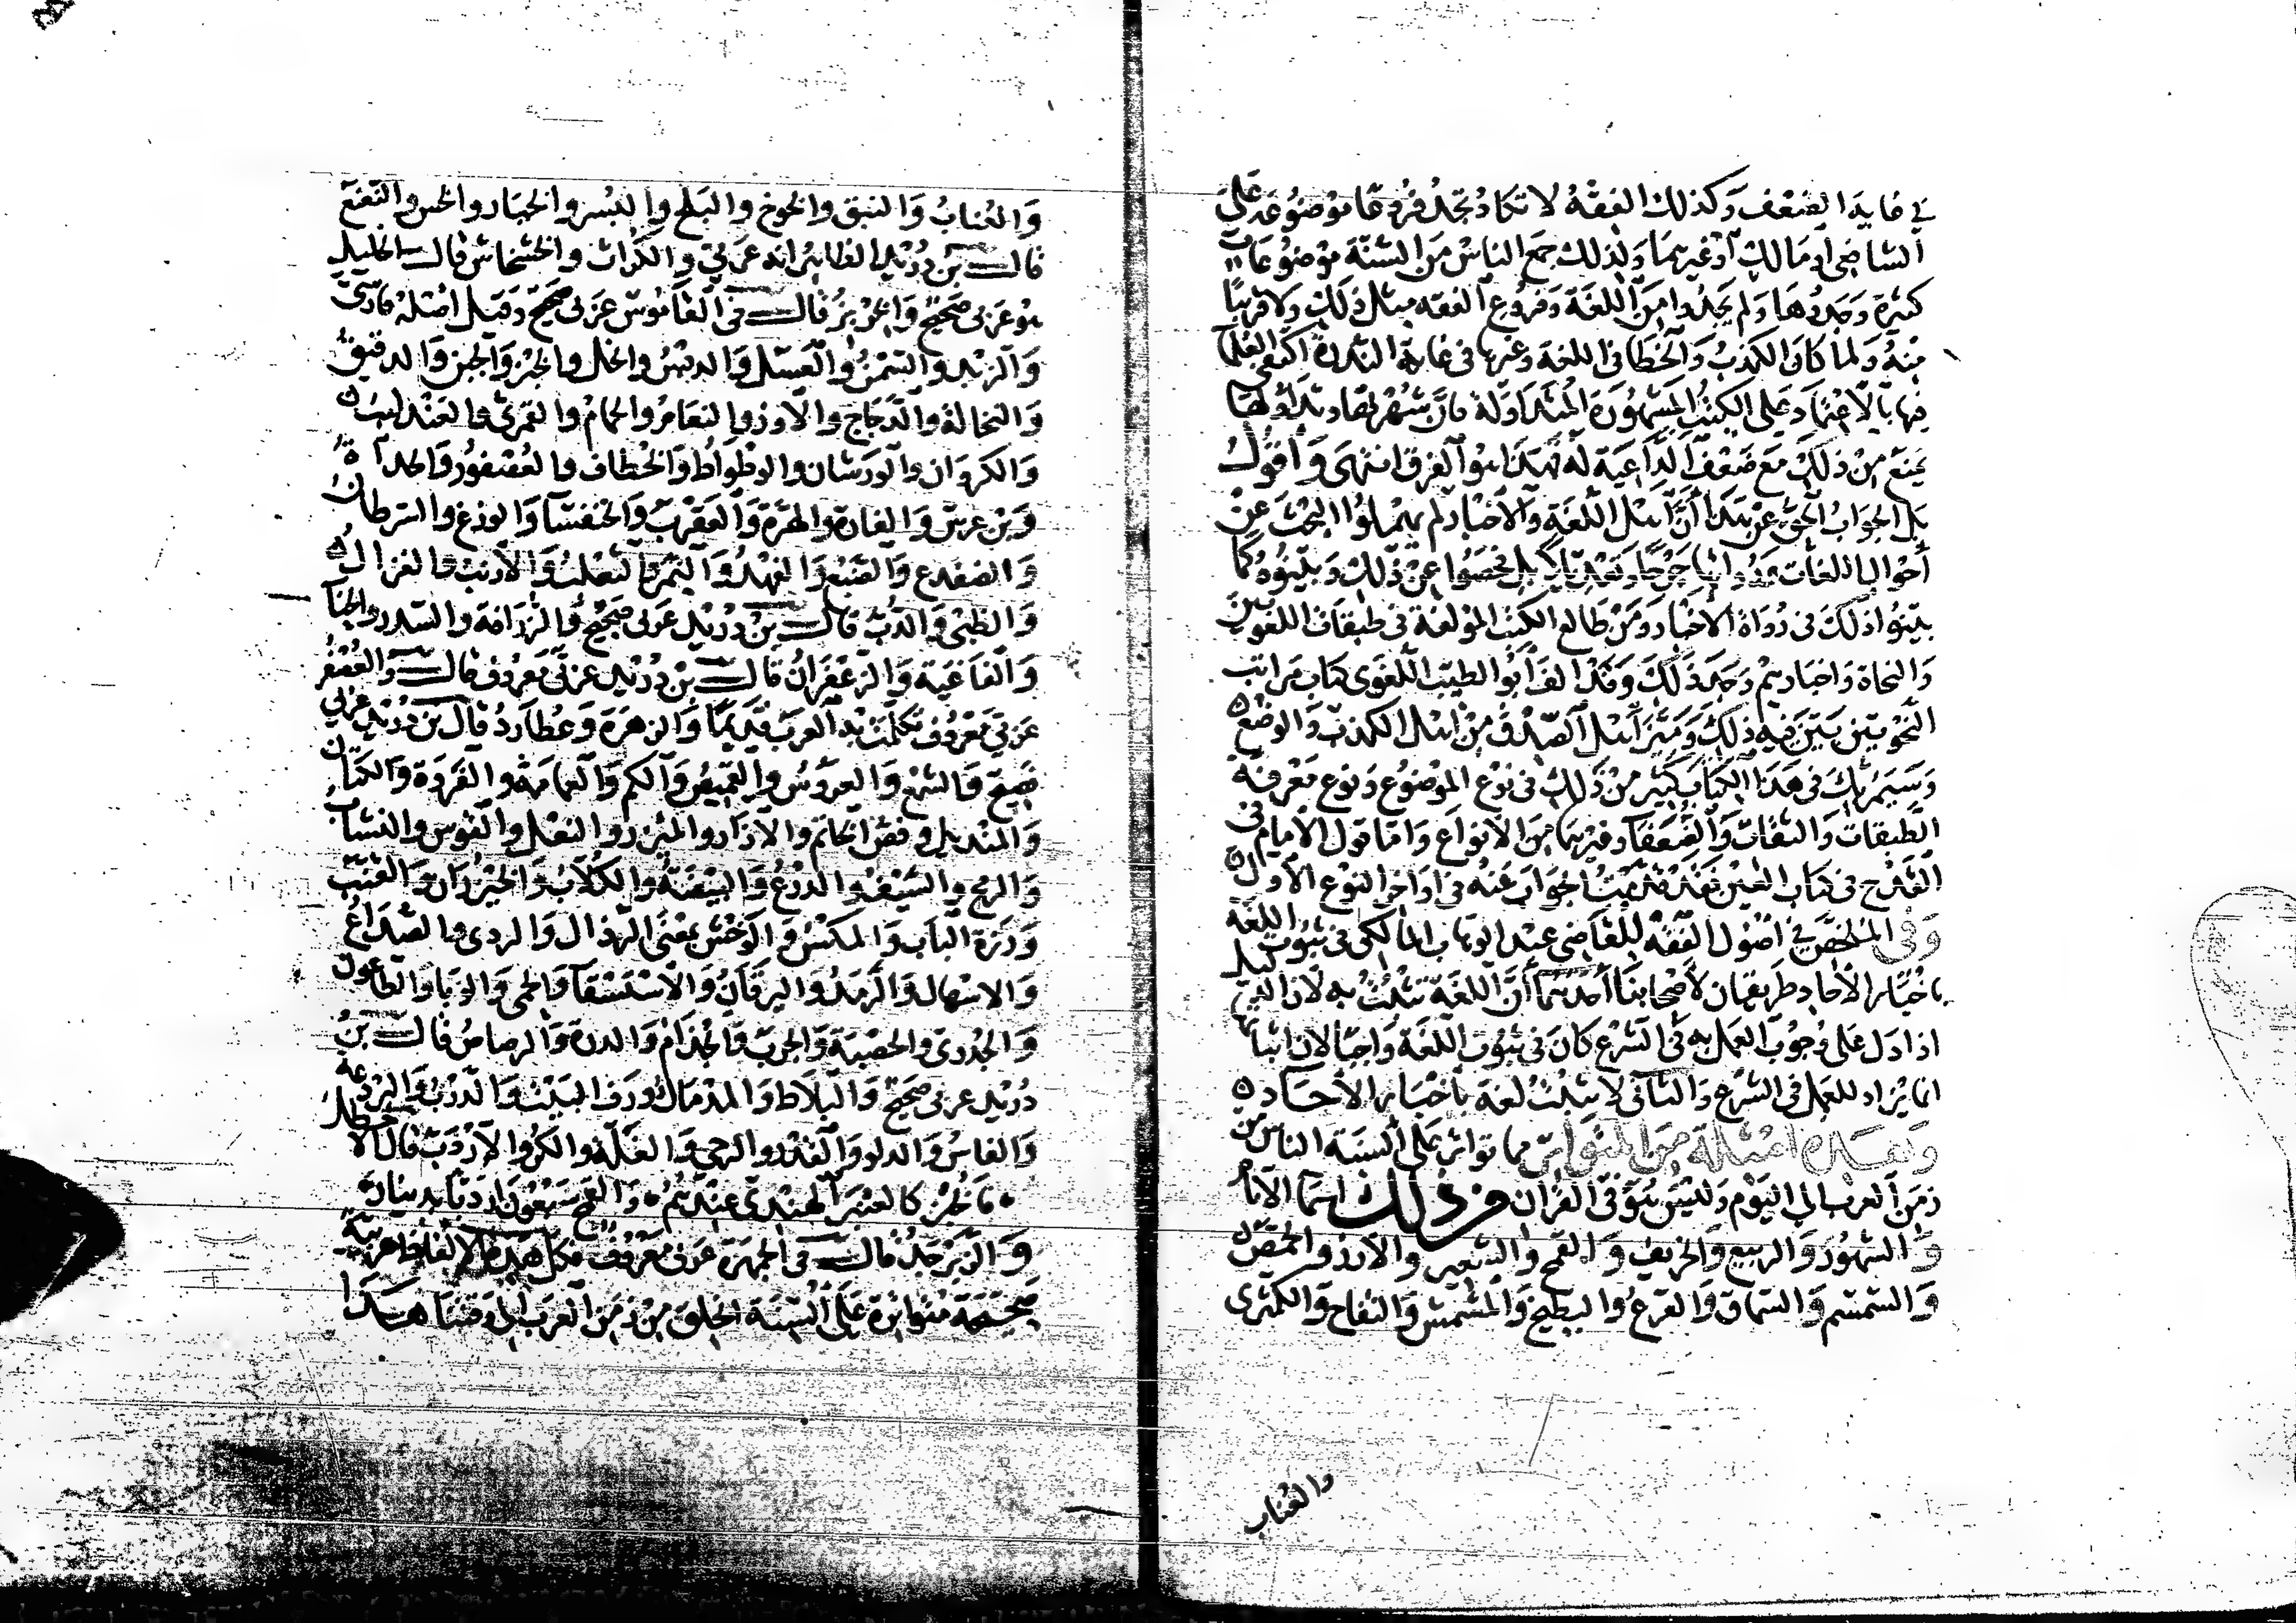 في غاية الضعف وكذلك الفقه لا تكاد تجد فروعا موضوعة على
الشافعي او مالك او غيرهما ولذلك جمع الناس من السنة موضوعات
كثيرة وجدوها ولم يجدوا من اللغة وفروع الفقه مثل ذلك ولا قريبا
منه ولما كان الكذب والخطا في اللغة وغيرها في غاية الندرة اكتفى العلما
فيها بالاعتماد على الكتب المشهورة المتداولة فان شهرتها وتداولها
يمنع من ذلك مع ضعف الداعية له فهذا هو الفرق انتهى واقول
بل الجواب الحق عن هذا أن اهل اللغة والاخبار لم يهملوا البحث عن
أحوال اللغات ورواتها جرحا وتعديلا بل فحصوا عن ذلك وبينوه كما
بينوا ذلك في رواة الاخبار ومن طالع الكتب المؤلفة في طبقات اللغويين
والنحاة واخبارهم وجد ذلك وقد الف أبو الطيب اللغوي كتاب مراتب
النحويين بين فيه ذلك وميز أهل الصدق من اهل الكذب والوضع
وسيمر بك في هذا الكتاب كثير من ذلك في نوع الموضوع ونوع معرفة
الطبقات والثقات والضعفا وغيرها من الانواع واما قول الامام في
القدح في كتاب العين فقد قدمت الجواب عنه في اواخر النوع الاول
وفي الملخص في اصول الفقه للقاضي عبد الوهاب المالكي في ثبوت اللغة
باخبار الاحاد طريقان لاصحابنا أحدهما أن اللغة تثبت به لان الدليل
اذا دل على وجوب العمل به في الشرع كان في ثبوت اللغة واجبا لان اثباتها
انما يراد للعمل في الشرع والثاني لا تثبت لغة باخبار الاحاد
وهذه امثلة من المتواتر مما تواتر على ألسنة الناس من
زمن العرب الى اليوم وليس هو في القرآن من ذلك اسما الايام
والشهور والربيع والخريف والقمح والشعير والارز والحمص
والسمسم والسماق والقرع والبطيخ والمشمش والتفاح والكمثرى
والعناب
والعناب والنبق والخوخ والبلح والبسر والخيار والخس والنعنع
قال بن دريد الظاهر انه عربي والكراث والخشخاش قال الخليل
هو عربي صحيح والخربز قال في القاموس عربي صحيح وقيل اصله فارسي
والزبد والسمن والعسل والدبس والخل والخبز والجبن والدقيق
والنخالة والدجاج والاوز والنعام والحمام والقمري والعندليب
والكروان والورشان والوطواط والخطاف والعصفور والحدأة
وبن عرس والفارة والهرة والعقرب والخنفسا والوزغ والسرطان
والضفدع والضبع والفهد والنمر والثعلب والارنب والغزال
والظبي والدب قال بن دريد عربي صحيح والزرافة والسدر والحنا
والفاغية والزعفران قال بن دريد عربي معروف قال والعصفر
عربي معروف تكلمت به العرب قديما والزهرة وعطارد قال بن دريد عربي
صحيح والشمع والعروس والقميص والكم والعمامة والفروة والكتان
والمنديل وفص الخاتم والازار والمئزر والنعل والقوس والنشاب
والرمح والسيف والدرع والبيضة والكلاب والخيزران والقنب
ودرة الباب والمكنس والوخش بمعنى الرذال والردي والصداع
والاسهال والرمد واليرقان والاستسقا والحمى والوبا والطاعون
والجدري والحصبة والجرب والجذام والدرة والرصاص قال بن
دريد عربي صحيح والبلاط والمدماك ورف البيت والدرب والبرذعة
والفاس والدلو والقدر والرحى والغلة والكر والاردب قال الاخطل
والخبز كالعنبر الهندي عندهم والقمح سبعون اردبا بدينار
والزبرجد قال في الجمهرة عربي معروف فكل هذه الالفاظ عربية
صحيحة متواترة على السنة الخلق من زمن العرب الى وقتنا هذا